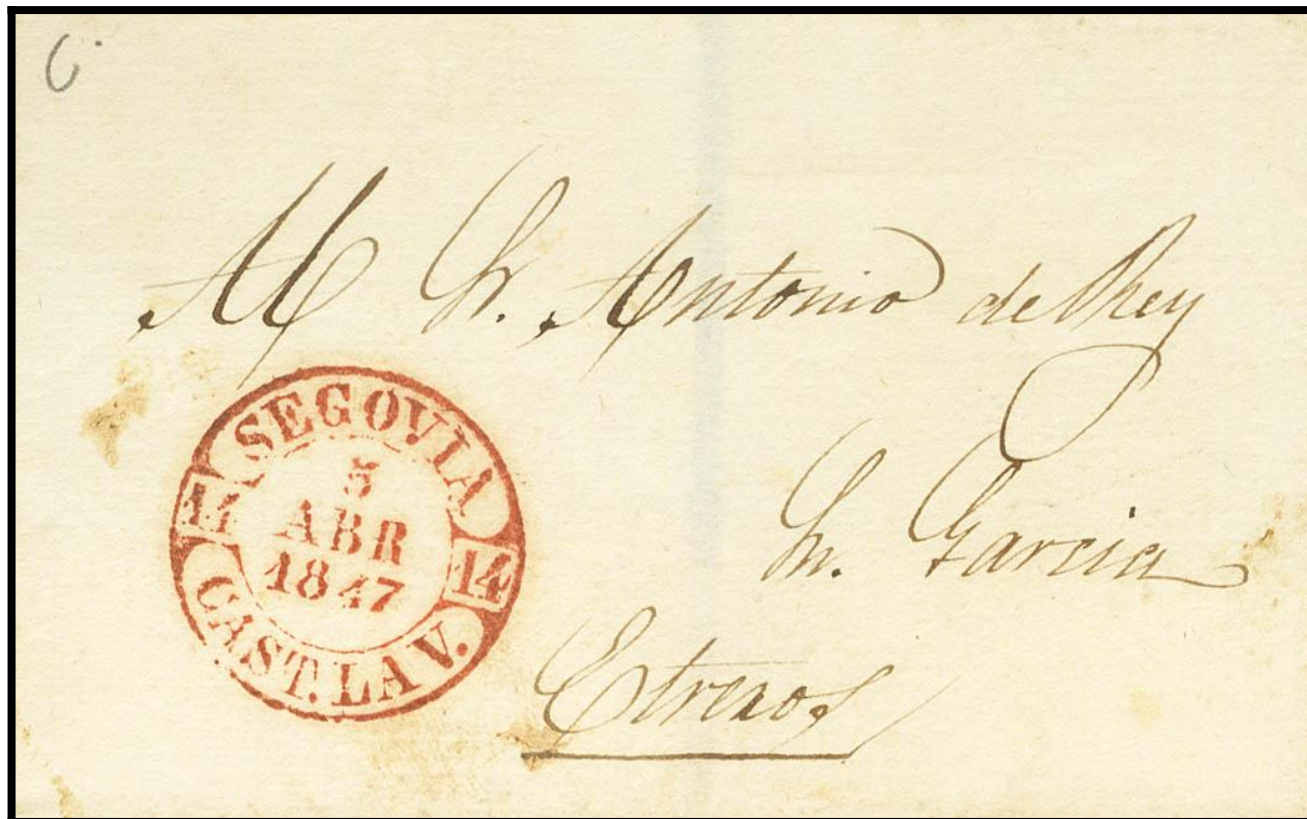 Al Sr. Antonio del Rey
Sn. Garcia
Etreros
SEGOVIA
14 14
5
ABR
1847
CAST. LA V.